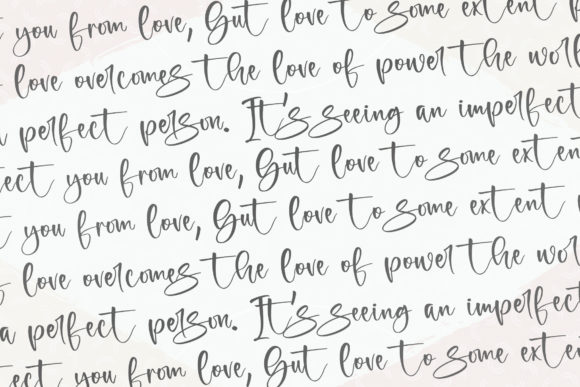 t you from love, But love to some extent
love overcomes the love of power the worl
a perfect person. It's seeing an imperfect
ect you from love, But love to some exten
t you from love, But love to some extent
love overcomes the love of power the wor
a perfect person. It's seeing an imperfect
ect you from love, But love to some exten